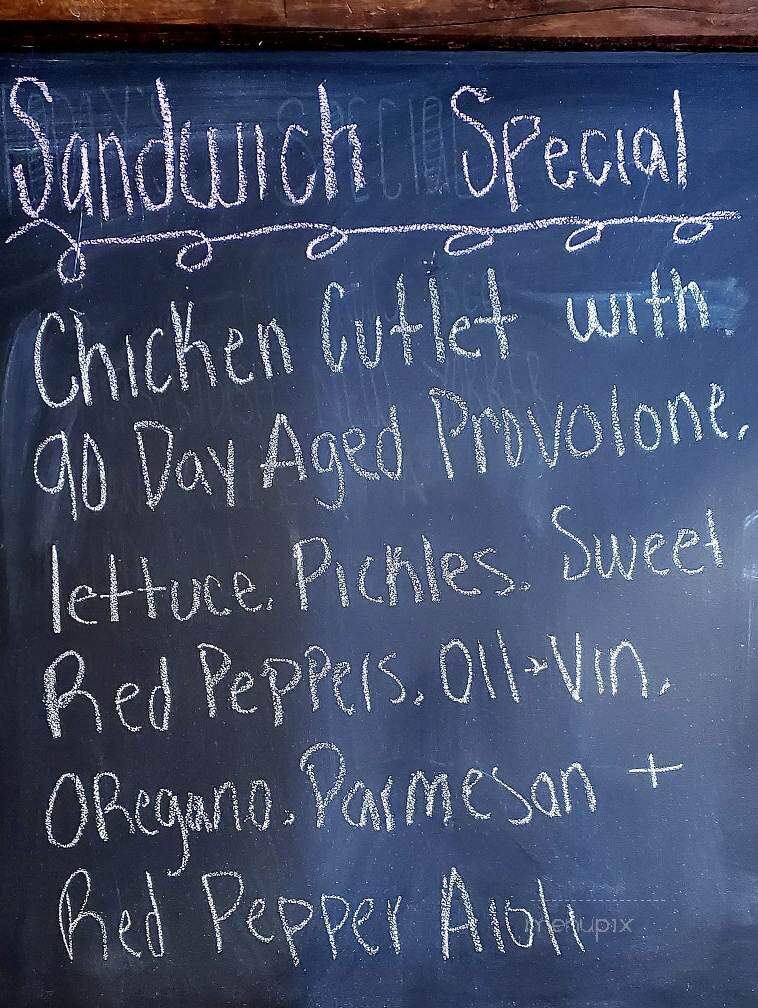 Sandwich Special
Chicken Cutlet with
90 Day Aged Provolone,
lettuce, Pickles, Sweet
Red Peppers, Oil + Vin,
Oregano, Parmesan +
Red Pepper Aioli
menupix